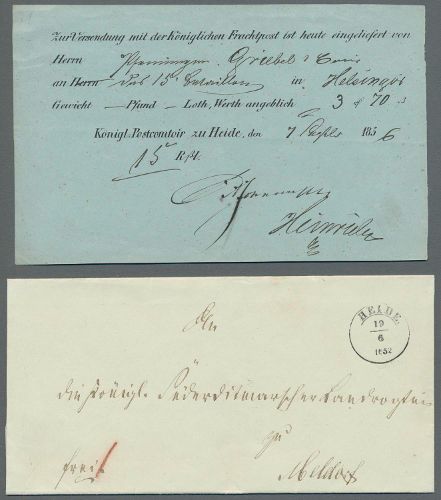 Zur Versendung mit der Königlichen Frachtpost ist heute eingeliefert von
Herrn Griebel
an Herrn das 15te Bataillon in Helsingör
Gewicht — Pfund — Loth, Werth angeblich 3 70
Königl. Postcomtoir zu Heide, den 7 1856
15 Rßl.
Heinrich
HEIDE.
19
6
1852
An
die Königl. Süderditmarscher Landvogtei
zu
Meldorf
frei